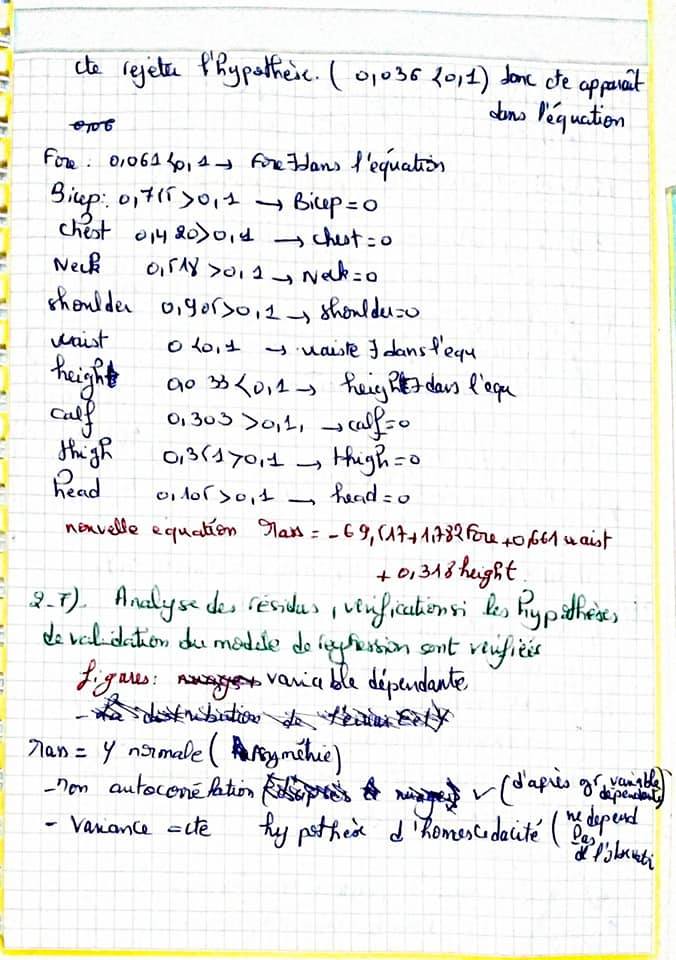 cte rejeter l'hypothèse. ( 0,036 < 0,1) donc cte apparaît
dans l'équation
0,06
Fore : 0,061 < 0,1 → Fore ∃ dans l'équation
Bicep : 0,715 > 0,1 → Bicep = 0
chest 0,420 > 0,1 → chest = 0
Neck 0,518 > 0,1 → Neck = 0
shoulder 0,905 > 0,1 → shoulder = 0
waist 0 < 0,1 → waiste ∃ dans l'equ
height 0,033 < 0,1 → height ∃ dans l'equ
calf 0,303 > 0,1, → calf = 0
thigh 0,351 > 0,1 → thigh = 0
head 0,105 > 0,1 → head = 0
nouvelle equation Mass = -69,517 + 1,782 Fore + 0,661 waist
+ 0,318 height
2-7) Analyse des résidus, vérification si les hypothèses
de validation du modèle de regression sont vérifiés
figures : variable dépendante
- La distribution de
Mass = Y normale ( Asymétrie)
- non autocorrélation ✓ (d'après gr variable dépendante)
- Variance = cte hypothèse d'homoscedacité ( ne depend
pas
de l'observati